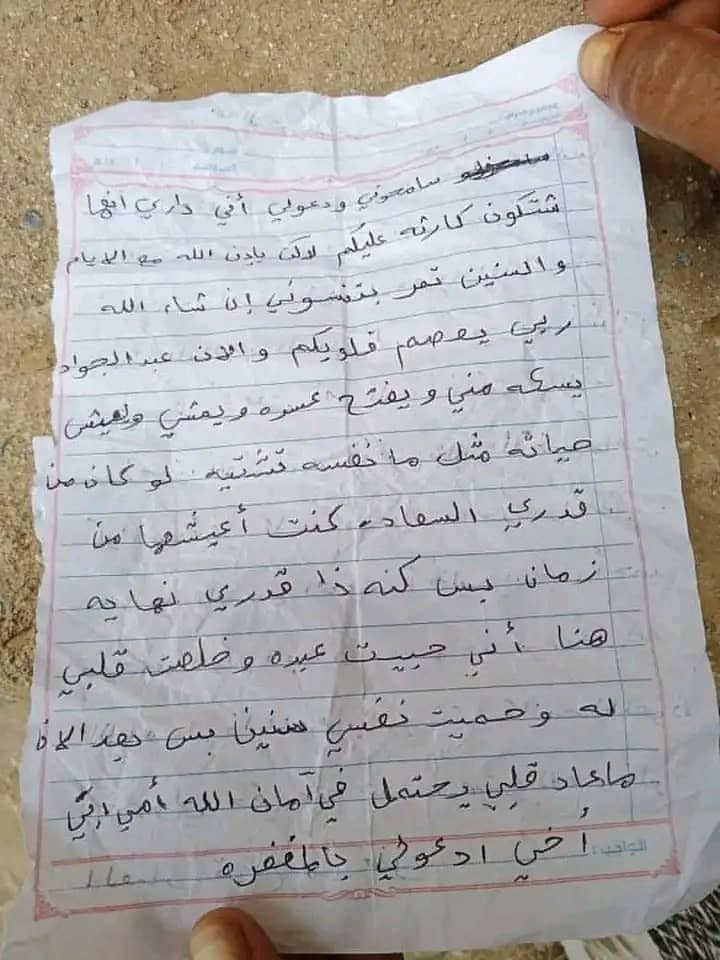 سامحوني ودعولي أني داري انها
شتكون كارثه عليكم لاكن بإذن الله مع الايام
والسنين تمر بتنسوني إن شاء الله
ربي يعصم قلوبكم والان عبدالجواد
يستكه مني ويفتح عسره ويمشي ويعيش
حياته مثل ما نفسه تشتيه لو كان من
قدري السعاده كنت أعيشها من
زمان بس كنه ذا قدري نهايه
هنا أني حبيت عبده وخلصت قلبي
له وحميت نفسي سنين بس بعد الان
ماعاد قلبي يحتمل في آمان الله أمي إبي
أخي ادعولي بالمغفره
الواجب: